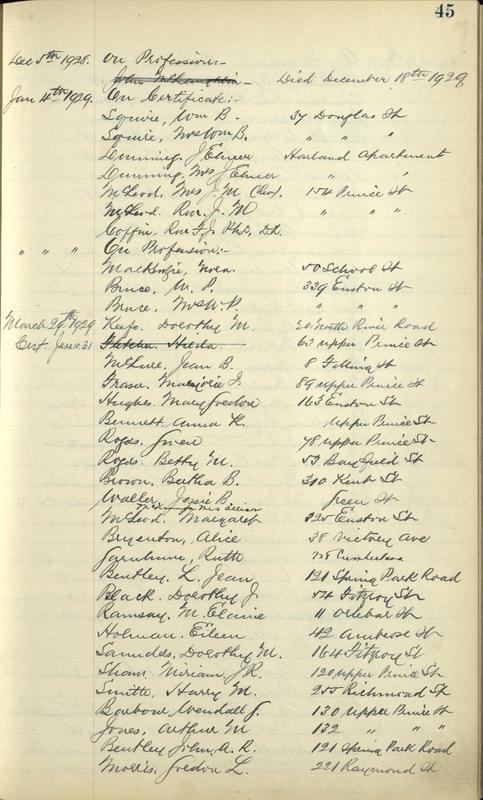 45
Dec 5th 1928. On Profession:-
John McLaughlin - Died December 18th 1929
Jan 4th 1929. On Certificate:-
Squire, Wm B. 37 Douglas St
Squire, Mrs Wm B. " " "
Dunning, J Elmer Harland Apartment
Dunning, Mrs J Elmer " "
McLeod, Mrs J. M. 154 Prince St
McLeod. Rev. J. M " " "
Coffin. Rev F. J. Ph.D., D.D.
" " " On Profession:-
MacKenzie, 50 School St
Bruce, W. P. 339 Euston St
Bruce, Mrs W. P. " " "
March 29th 1929 Keefe. Dorothy M. 20 North River Road
Cert. June 31 Fletcher. Hilda 63 Upper Prince St
McLure, Jean B. 8 St
Fraser. Marjorie J. 89 Upper Prince St
Hughes. Mary Gordon 163 Euston St
Bennett, Anna K. Upper Prince St
Rogers. Gwen 78 Upper Prince St
Rogers. Betty M. 53 Bayfield St
Brown, Bertha B. 210 Kent St
Waller, Jessie B. Green St
McLeod. Margaret 325 Euston St
Bryenton, Alice 38 Victory Ave
Ruth 138 Cumberland
Bentley. L. Jean 121 Spring Park Road
Black. Dorothy J. 54 Fitzroy St
Ramsay. M. Elaine 11 Orlebar St
Holman. Eileen 42 Ambrose St
Saunders, Dorothy M. 164 Fitzroy St
Sham. Miriam J. R. 120 Upper Prince St
Smith, Harry M. 255 Richmond St
Barbour, Wendall G. 130 Upper Prince St
Jones, Arthur M 132 " " "
Bentley John, A. R. 121 Spring Park Road
Morris, Gordon L. 221 Raymond St